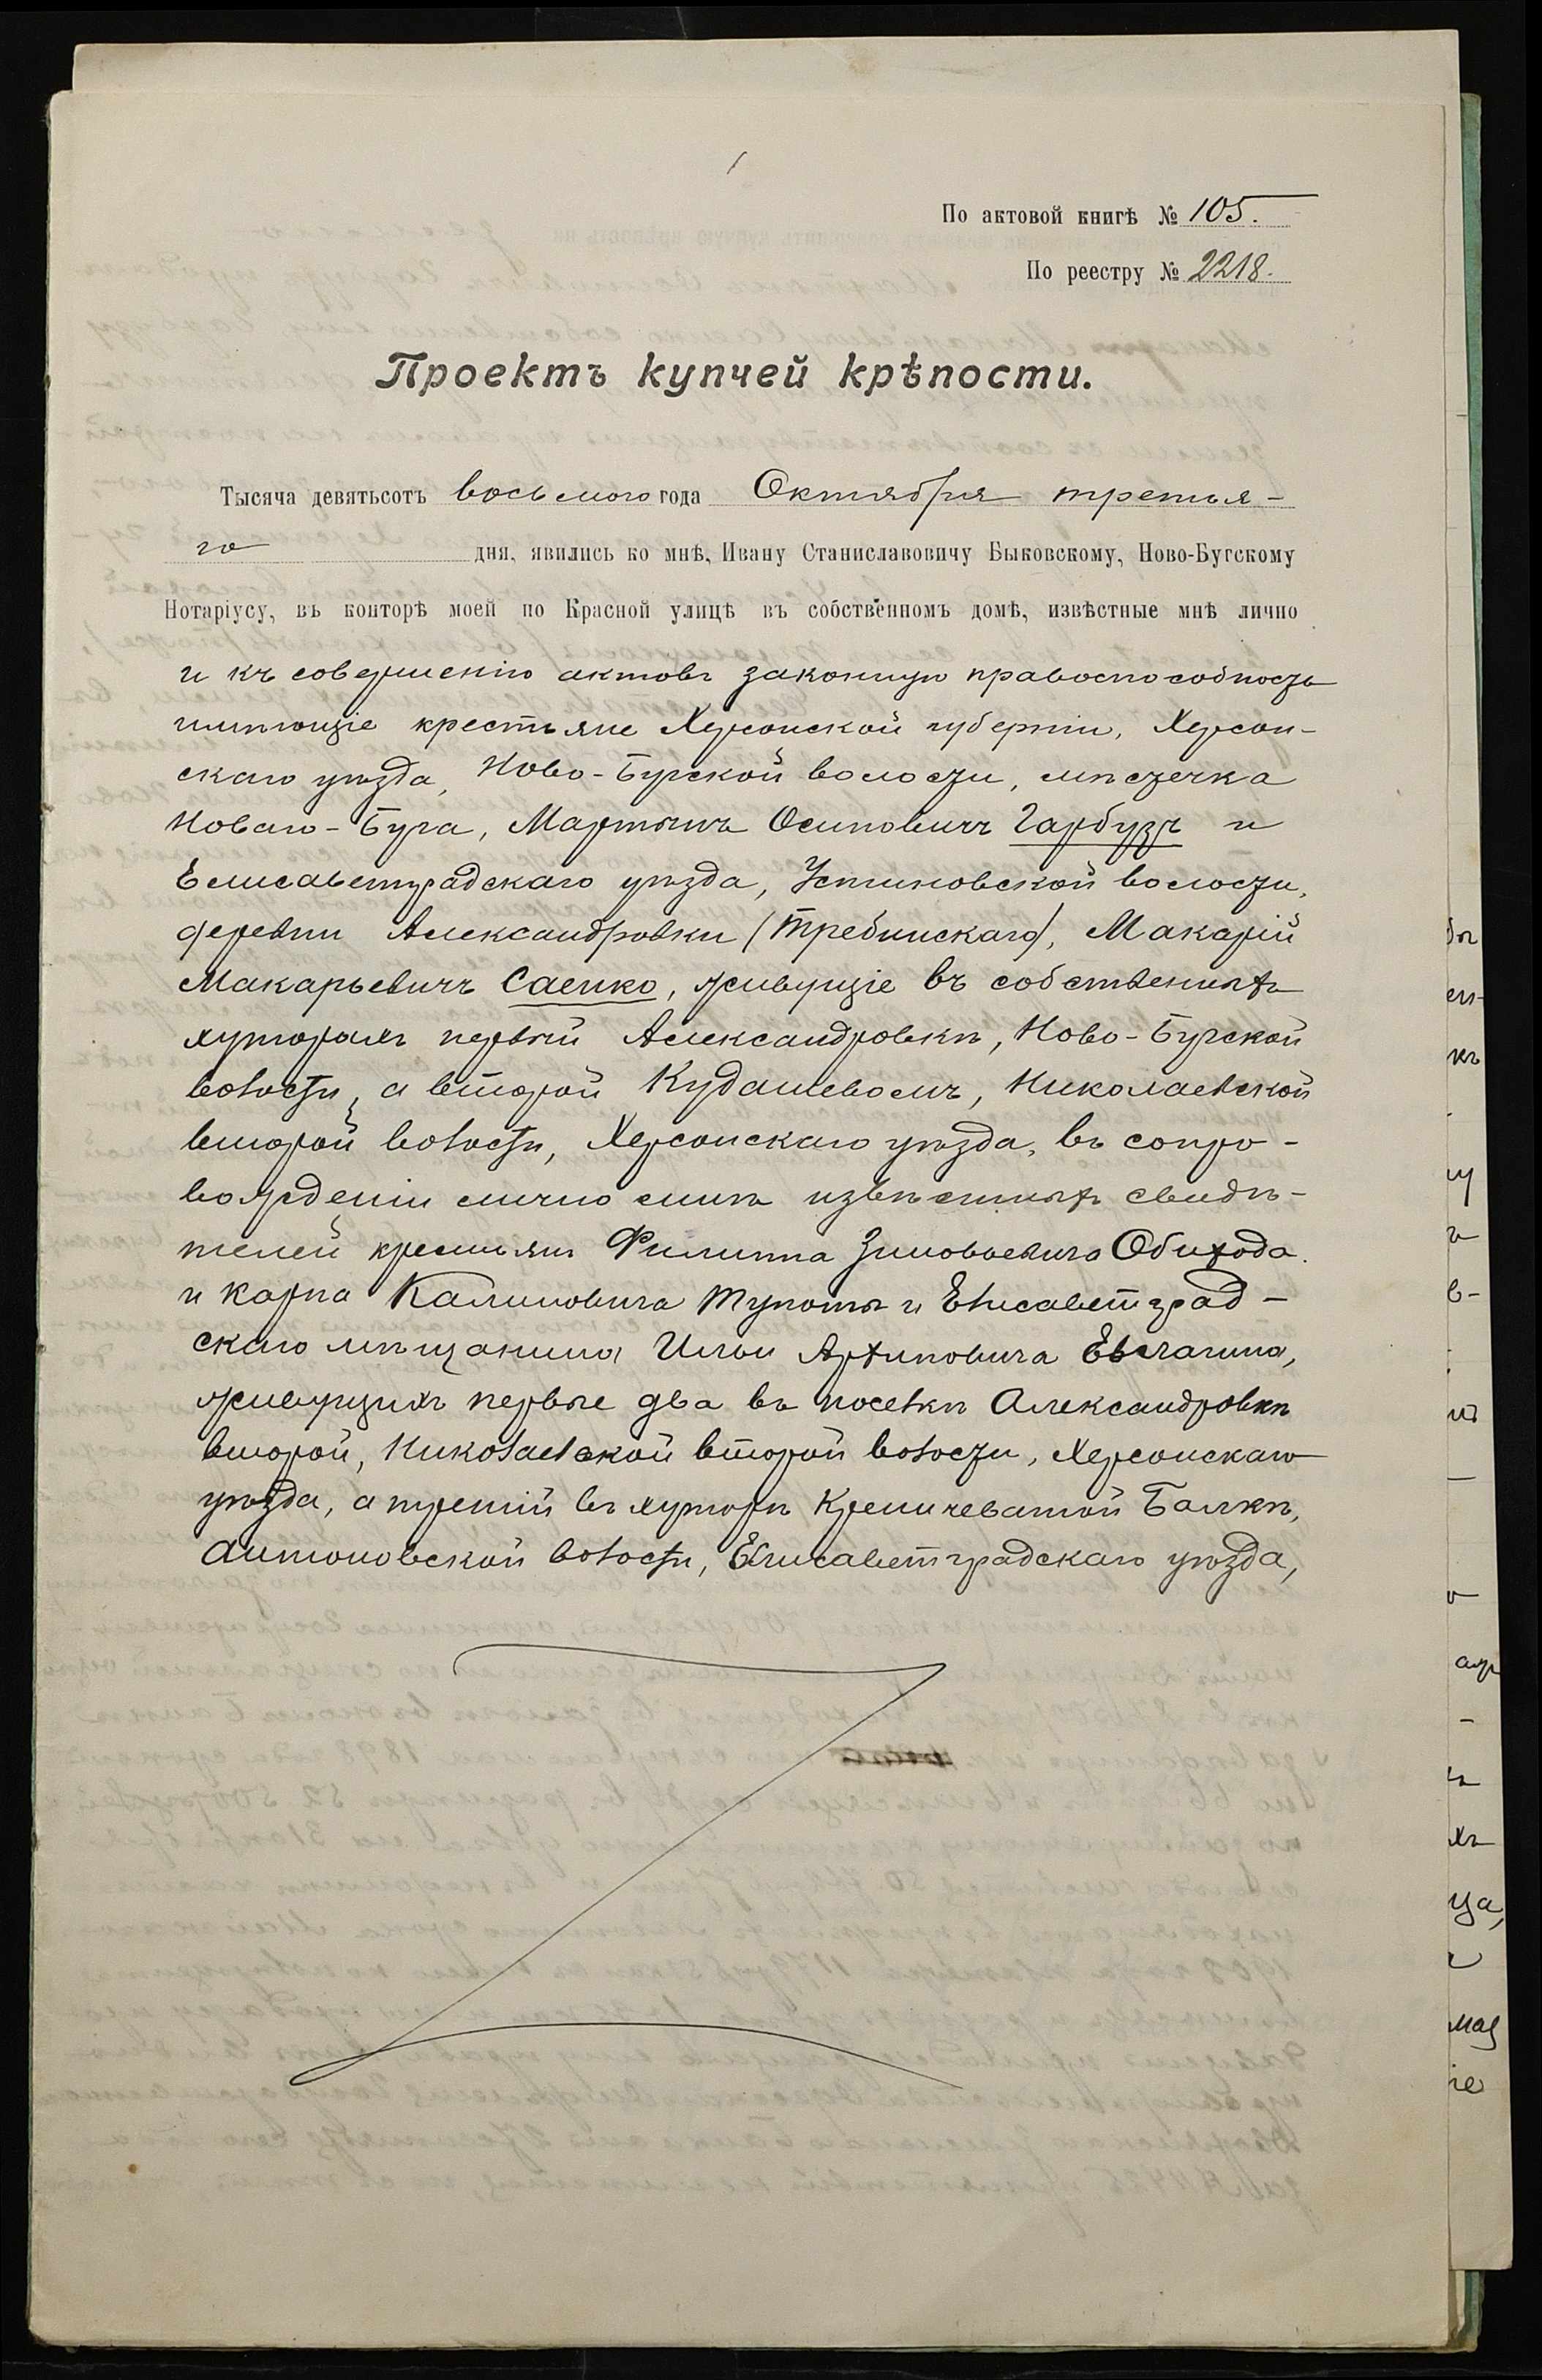 По актовой книгѣ № 105.
По реестру № 2218.
Проектъ купчей крѣпости.
Тысяча девятьсотъ восьмого года Октября третья-
го дня, явились ко мнѣ, Ивану Станиславовичу Быковскому, Ново-Бугскому
Нотаріусу, въ конторѣ моей по Красной улицѣ въ собственномъ домѣ, извѣстные мнѣ лично
и къ совершенію актовъ законную правоспособность
имѣющіе крестьяне Херсонской губерніи, Херсон-
скаго уѣзда, Ново-Бугской волости, мѣстечка
Новаго-Буга, Мартынъ Осиповичъ Гарбузъ и
Елисаветградскаго уѣзда, Устиновской волости,
деревни Александровки (Требинскаго), Макарій
Макарьевичъ Саенко, живущіе въ собственныхъ
хуторахъ первый Александровкѣ, Ново-Бугской
волости, а второй Кудашевомъ, Николаевской
второй волости, Херсонскаго уѣзда, въ сопро-
вожденіи лично мнѣ извѣстныхъ свидѣ-
телей крестьянъ Филиппа Зиновьевича Обихода
и Карпа Калиновича Тупоты и Елисаветград-
скаго мѣщанина Ильи Архиповича Евлагина,
живущихъ первые два въ поселкѣ Александровкѣ
второй, Николаевской второй волости, Херсонскаго
уѣзда, а третій въ хуторѣ Кремичеватой Балкѣ,
Антоновской волости, Елисаветградскаго уѣзда,